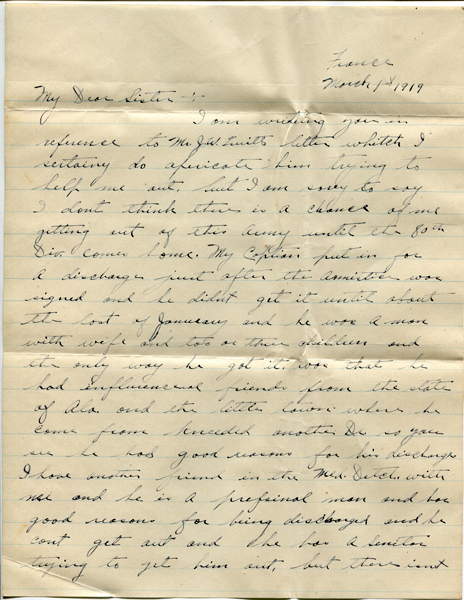 France
March 1st 1919
My Dear Sister :-
I am wreiting you in
reference to Mr. J.W. Pruitts letter whitch I
sertainy do apricate him trying to
help me out, but I am sorry to say
I dont think there is a chance of me
gitting out of this Army until the 80th
Div. comes home. My Captian put in for
a discharge just after the armistice was
signed and he didnt get it until about
the last of Januuary and he was a man
with wife and two or three children and
the only way he got it was that he
had influencueal friends from the state
of Ala. and the little town where he
come from kneeded another Dr. so you
see he had good reasons for his discharge
I have another friend in the Med. Detch. with
me and he is a prefsinal man and has
good reasons for being discharged and he
cant get out and she has a Senitor
trying to get him out, but there isnt